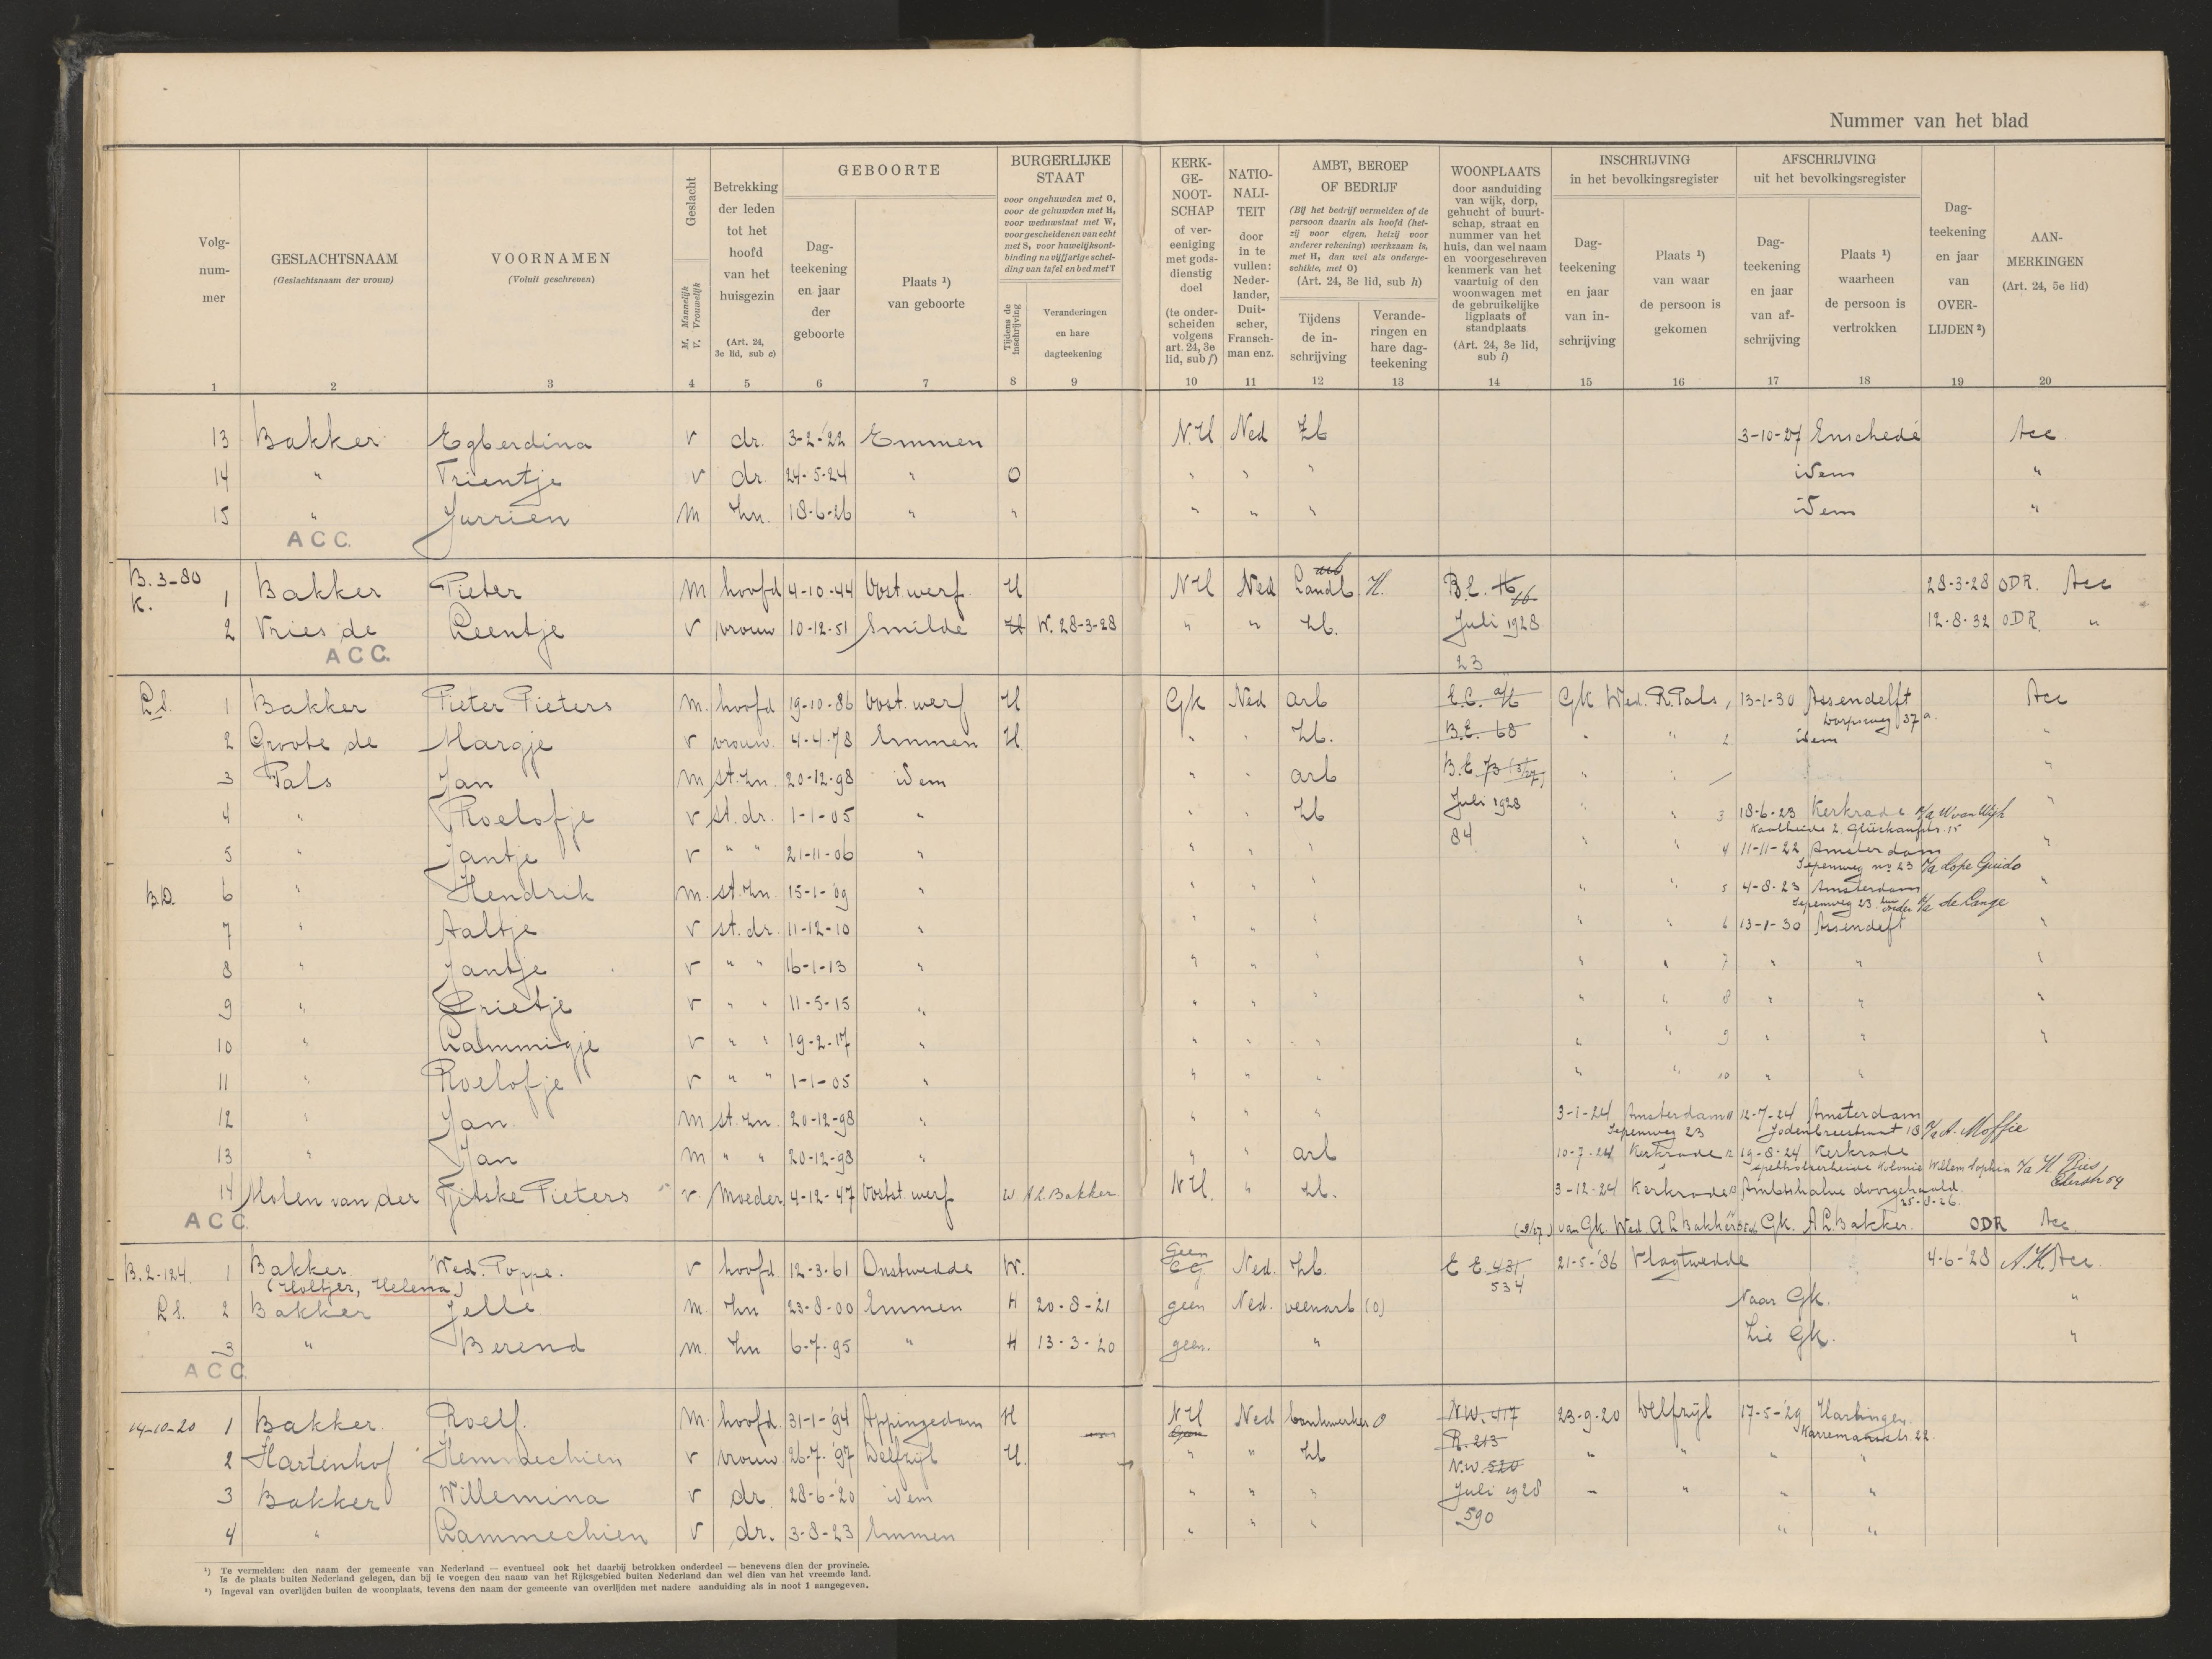 Nummer van het blad
Volg-
num-
mer
1
GESLACHTSNAAM
(Geslachtsnaam der vrouw)
2
VOORNAMEN
(Voluit geschreven)
3
Geslacht
M. Mannelijk
V. Vrouwelijk
4
Betrekking
der leden
tot het
hoofd
van het
huisgezin
(Art. 24,
3e lid, sub c)
5
GEBOORTE
Dag-
teekening
en jaar
der
geboorte
6
Plaats ¹)
van geboorte
7
BURGERLIJKE
STAAT
voor ongehuwden met O,
voor de gehuwden met H,
voor weduwstaat met W,
voor gescheidenen van echt
met S, voor huwelijksont-
binding na vijfjarige schei-
ding van tafel en bed met T
Tijdens de
inschrijving
8
Veranderingen
en hare
dagteekening
9
KERK-
GE-
NOOT-
SCHAP
of ver-
eeniging
met gods-
dienstig
doel
(te onder-
scheiden
volgens
art. 24, 3e
lid, sub f)
10
NATIO-
NALI-
TEIT
door
in te
vullen:
Neder-
lander,
Duit-
scher,
Fransch-
man enz.
11
AMBT, BEROEP
OF BEDRIJF
(Bij het bedrijf vermelden of de
persoon daarin als hoofd (het-
zij voor eigen, hetzij voor
anderer rekening) werkzaam is,
met H, dan wel als onderge-
schikte, met O)
(Art. 24, 3e lid, sub h)
Tijdens
de in-
schrijving
12
Verande-
ringen en
hare dag-
teekening
13
WOONPLAATS
door aanduiding
van wijk, dorp,
gehucht of buurt-
schap, straat en
nummer van het
huis, dan wel naam
en voorgeschreven
kenmerk van het
vaartuig of den
woonwagen met
de gebruikelijke
ligplaats of
standplaats
(Art. 24, 3e lid,
sub i)
14
INSCHRIJVING
in het bevolkingsregister
Dag-
teekening
en jaar
van in-
schrijving
15
Plaats ¹)
van waar
de persoon is
gekomen
16
AFSCHRIJVING
uit het bevolkingsregister
Dag-
teekening
en jaar
van af-
schrijving
17
Plaats ¹)
waarheen
de persoon is
vertrokken
18
Dag-
teekening
en jaar
van
OVER-
LIJDEN ²)
19
AAN-
MERKINGEN
(Art. 24, 5e lid)
20
13 Bakker Egberdina v dr. 3-2-'22 Emmen N.H Ned Zb 3-10-27 Enschedé Acc
14 " Trientje v dr. 24-5-24 " O " " " idem "
15 " Jurrien m zn. 18-6-26 " " " " " idem "
ACC.
B. 3-80
K. 1 Bakker Pieter m hoofd 4-10-44 Oost.werf. H NH Ned Landb H. B.E. 16 28-3-28 ODR. Acc
2 Vries de Leentje v vrouw 10-12-51 Smilde H W. 28-3-28 " " Zb. Juli 1928 12-8-32 ODR. "
ACC. 23
L.S. 1 Bakker Pieter Pieters m. hoofd 19-10-86 Oost.werf H Gk Ned arb E.C. Gk Wed. R. Pals, 1 13-1-30 Assendelft Acc
Dorpsweg 37a.
2 Groote de Margje v vrouw. 4-4-78 Emmen H. " " Zb. B.E. 68 " " 2 idem "
3 Pals Jan m st.zn. 20-12-98 idem " " arb B.E. 73 " " "
4 " Roelofje v st.dr. 1-1-05 " " " Zb Juli 1928 " " 3 18-6-23 Kerkrade p/a W van Wijk "
Kaalheide 2. Glückaufstr. 15
5 " Jantje v " " 21-11-06 " " " " 84 " " 4 11-11-22 Amsterdam "
Iepenweg no 23 p/a Lope Guido
B.D. 6 " Hendrik m. st.zn. 15-1-09 " " " " " " 5 4-8-23 Amsterdam "
Iepenweg 23 p/a de Lange
7 " Aaltje v st.dr. 11-12-10 " " " " " " 6 13-1-30 Assendeft "
8 " Jantje v " " 16-1-13 " " " " " " 7 " " "
9 " Grietje v " " 11-5-15 " " " " " " 8 " " "
10 " Lammigje v " " 19-2-17 " " " " " " 9 " " "
11 " Roelofje v " " 1-1-05 " " " " " " 10 " "
12 " Jan. m st.zn. 20-12-98 " " " " 3-1-24 Amsterdam 11 12-7-24 Amsterdam
Iepenweg 23 Jodenbreestraat 18 p/a A. Moffie
13 " Jan m " " 20-12-98 " " " arb 10-7-24 Kerkrade 12 19-8-24 Kerkrade
Spekholzerheide Kolonie Willem Sophia p/a H. Ries
14 Molen van der Tjitske Pieters v. Moeder 4-12-47 Oostst.werf W. A L. Bakker. NH. " Zb. 3-12-24 Kerkrade 13 Ambtshalve doorgehaald
25-8-26
ACC. van Gk. Wed. A L Bakker Gk. A L Bakker. ODR Acc
B.2-124. 1 Bakker. Wed. Poppe. v hoofd 12-3-61 Onstwedde W. Geen Ned. Zb. E E 431 21-5-'86 Vlagtwedde 4-6-'28 A.H. Acc.
(Holtjer, Helena) C G 534
L.S. 2 Bakker Jelle m. zn 23-8-00 Emmen H 20-8-21 geen Ned. veenarb (O) Naar Gk. "
3 " Berend m. zn 6-7-95 " H 13-3-20 geen. " Zie Gk. "
ACC.
14-10-20 1 Bakker. Roelf. m. hoofd. 31-1-'94 Appingedam H NH Ned bankwerker O N.W. 417 23-9-20 Delfzijl 17-5-'29 Harlingen.
Geen R. 213 Karremanstr. 22.
2 Hartenhof Hemmechien v vrouw 26-7-'97 Delfzijl H. " " Zb N.W. 520 " " " "
3 Bakker Willemina v dr. 28-6-'20 idem " " " Juli 1928 " " " "
4 " Lammechien v dr. 3-8-23 Emmen " " " 590 " "
¹) Te vermelden: den naam der gemeente van Nederland — eventueel ook het daarbij betrokken onderdeel — benevens dien der provincie.
Is de plaats buiten Nederland gelegen, dan bij te voegen den naam van het Rijksgebied buiten Nederland dan wel dien van het vreemde land.
²) Ingeval van overlijden buiten de woonplaats, tevens den naam der gemeente van overlijden met nadere aanduiding als in noot 1 aangegeven.